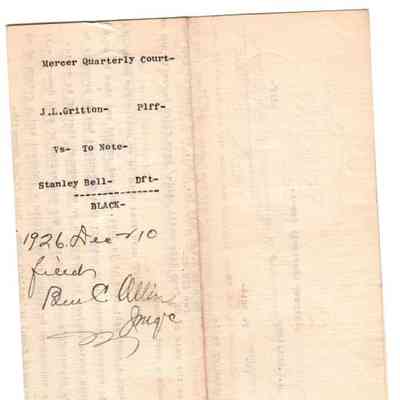 Mercer Quarterly Court-
J.L.Gritton- Plff-
Vs- To Note-
Stanley Bell- Dft-
BLACK-
1926. Dec 10
filed
Ben C. Allin